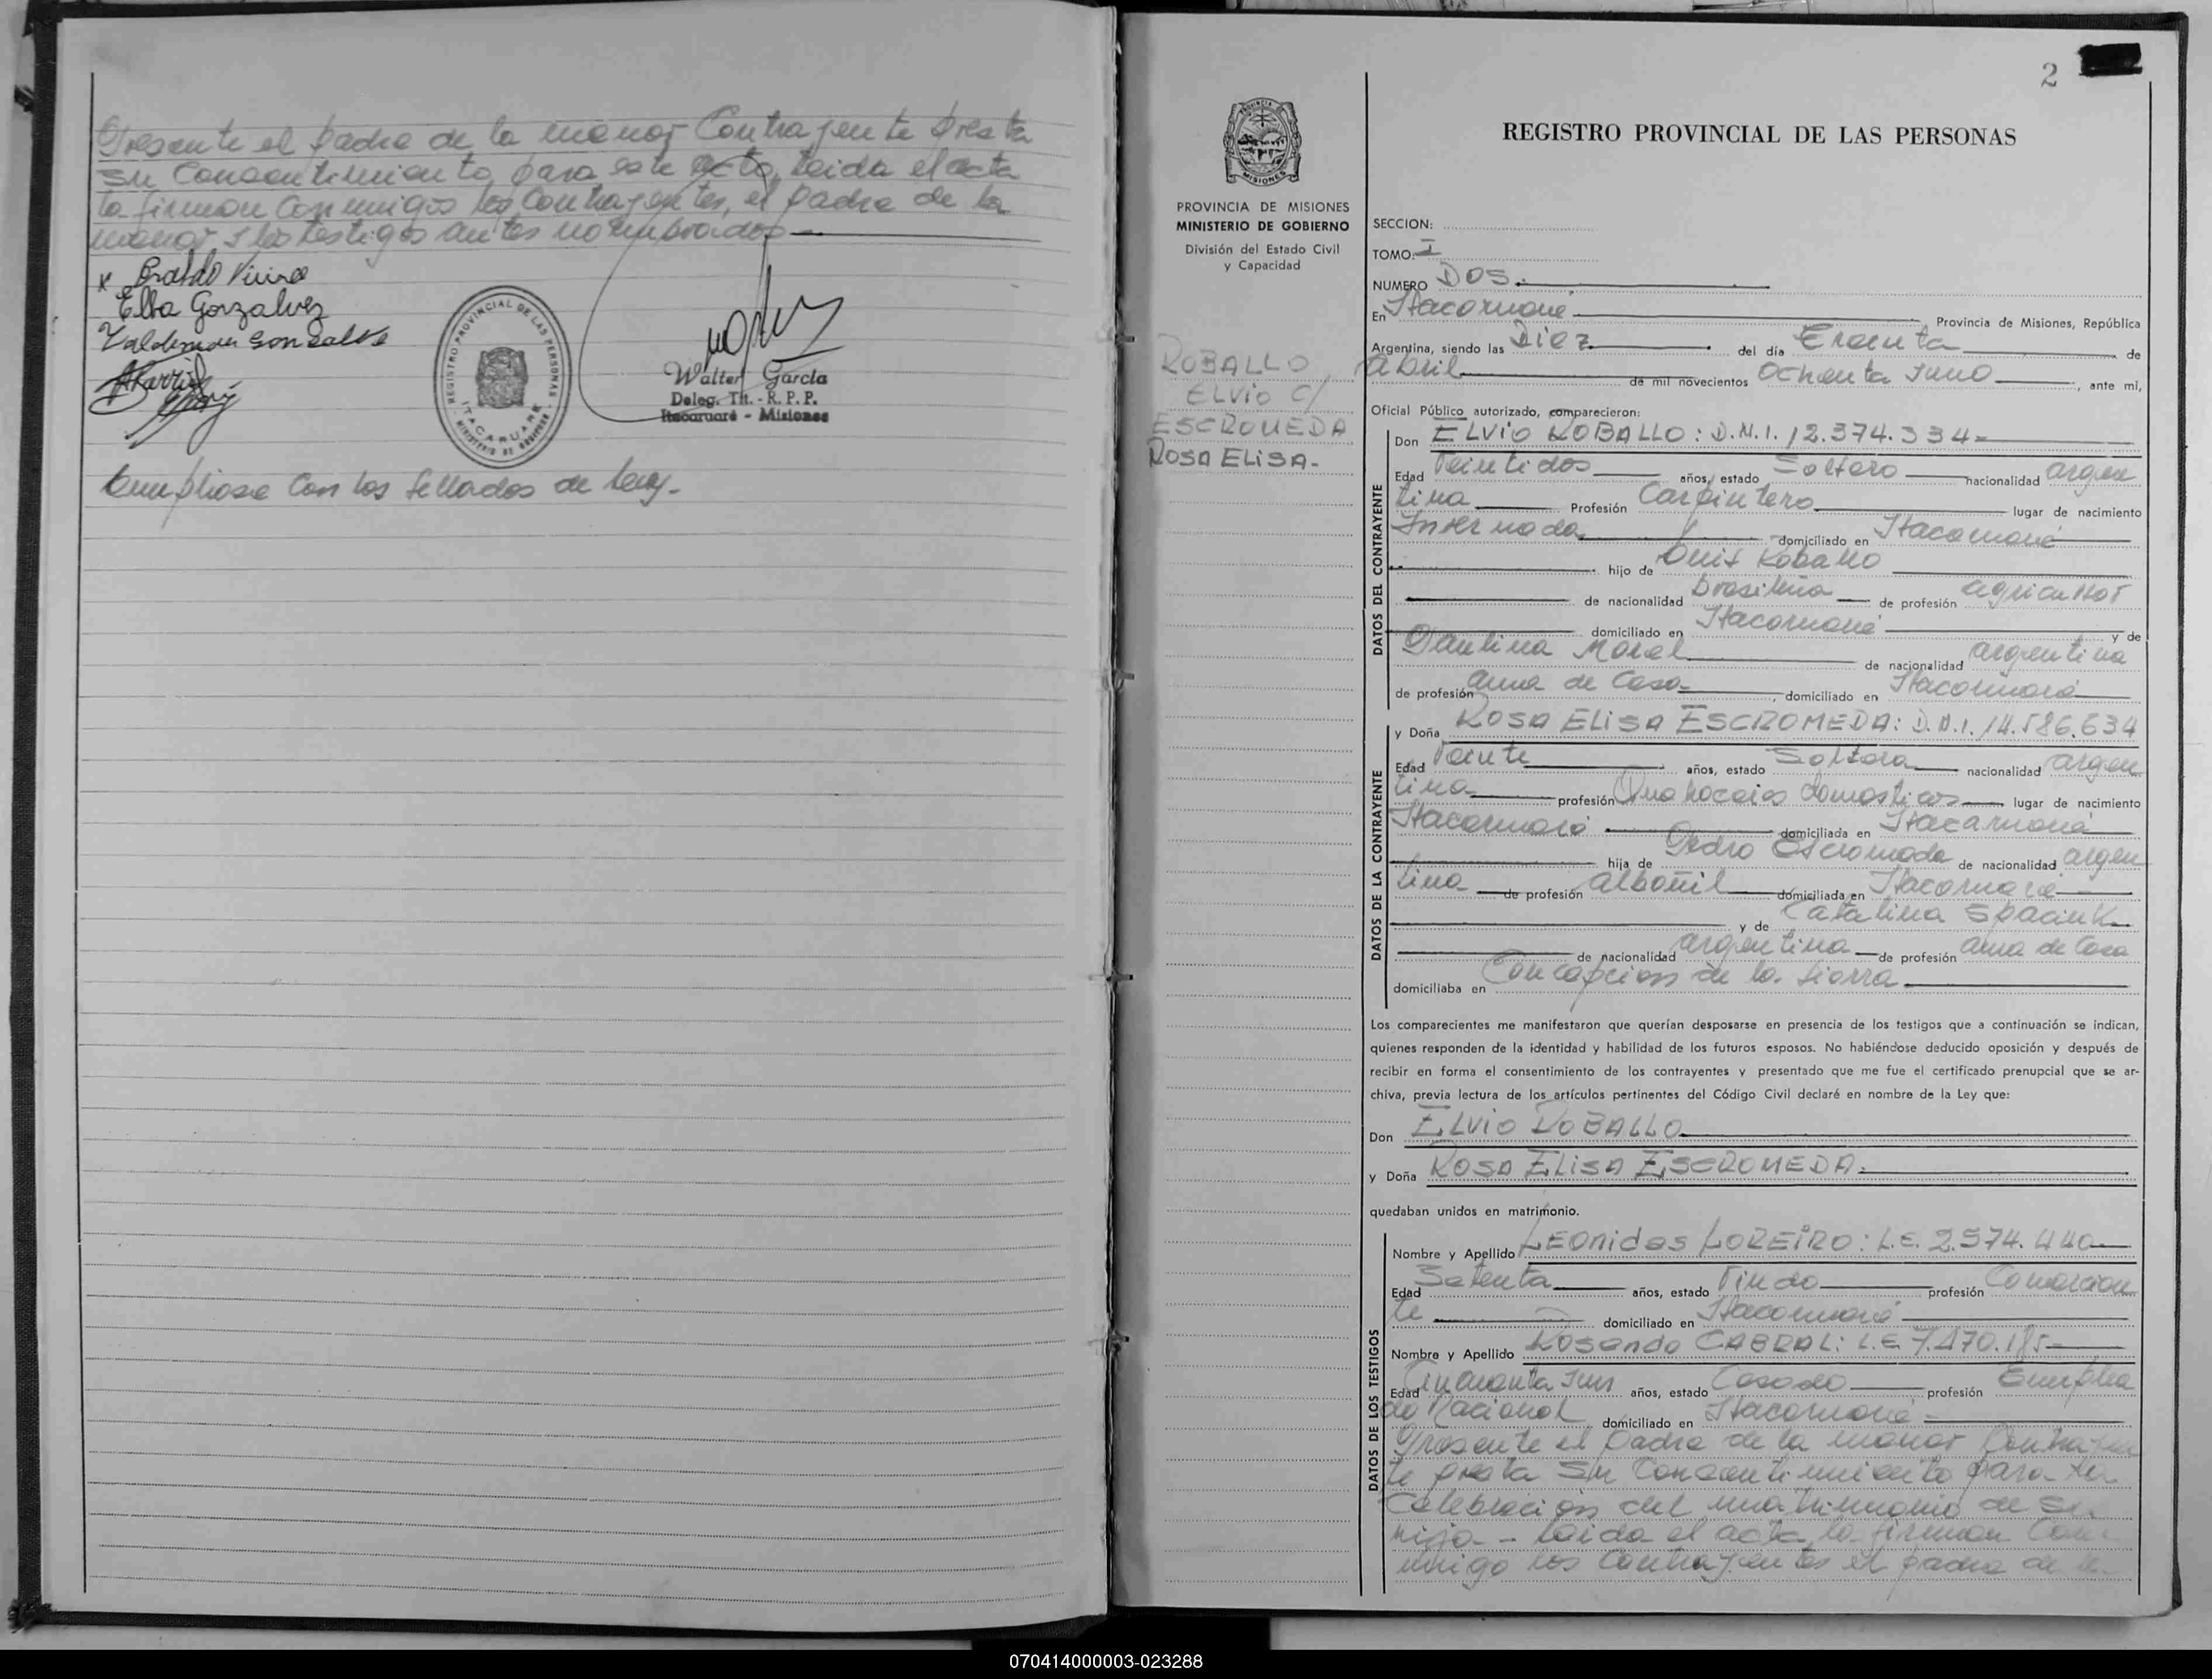 Presente el padre de la menor Contrayente presta
su Consentimiento para este acto, leida el acta
la firman Conmigo los Contrayentes, el padre de la
menor y los testigos antes nombrados
x
Elba Gonzalvez
Valdemar Gonzalves
REGISTRO PROVINCIAL DE LAS PERSONAS
ITACARUARE
MINISTERIO DE GOBIERNO
Walter Garcia
Deleg. Tit. - R. P. P.
Itacaruaré - Misiones
Cumpliose Con los Sellados de Ley.-
2
PROVINCIA DE
MISIONES
PROVINCIA DE MISIONES
MINISTERIO DE GOBIERNO
División del Estado Civil
y Capacidad
ROBALLO
ELVIO C/
ESCROMEDA
ROSA ELISA.-
REGISTRO PROVINCIAL DE LAS PERSONAS
SECCION:
TOMO: I
NUMERO DOS.
En Itacaruaré Provincia de Misiones, República
Argentina, siendo las Diez del día de
Abril de mil novecientos Ochenta y uno, ante mi,
Oficial Público autorizado, comparecieron:
DATOS DEL CONTRAYENTE
Don ELVIO ROBALLO: D.N.I. 12.374.334-
Edad Veintidos años, estado Soltero nacionalidad argen
tina Profesión Carpintero lugar de nacimiento
domiciliado en Itacaruaré
hijo de Roballo
de nacionalidad brasileña de profesión agricultor
domiciliado en Itacaruaré y de
Paulina Morel de nacionalidad argentina
de profesión ama de Casa, domiciliado en Itacaruaré
DATOS DE LA CONTRAYENTE
y Doña ROSA ELISA ESCROMEDA: D.N.I. 14.586.634
Edad Veinte años, estado Soltera nacionalidad argen
tina profesión Quehaceres domesticos lugar de nacimiento
Itacaruaré domiciliada en Itacaruaré
hija de Pedro Escromeda de nacionalidad argen
tina de profesión albañil domiciliada en Itacaruaré
y de Catalina
de nacionalidad argentina de profesión ama de Casa
domiciliaba en Concepcion de la Sierra
Los comparecientes me manifestaron que querían desposarse en presencia de los testigos que a continuación se indican,
quienes responden de la identidad y habilidad de los futuros esposos. No habiéndose deducido oposición y después de
recibir en forma el consentimiento de los contrayentes y presentado que me fue el certificado prenupcial que se ar-
chiva, previa lectura de los artículos pertinentes del Código Civil declaré en nombre de la Ley que:
Don ELVIO ROBALLO
y Doña ROSA ELISA ESCROMEDA.
quedaban unidos en matrimonio.
DATOS DE LOS TESTIGOS
Nombre y Apellido LEONIDAS LOREIRO: L.E. 2.574.440
Edad Setenta años, estado Viudo profesión Comercian
te domiciliado en Itacaruaré
Nombre y Apellido Rosendo CABRAL: L.E. 7.470.185
Edad Cincuenta y un años, estado Casado profesión Emplea
do Nacional domiciliado en Itacaruaré-
Presente el padre de la menor Contrayen
te presta su Consentimiento para la
Celebración del matrimonio de su
hija.- Leida el acta la firman Con
migo los Contrayentes el padre de la
070414000003-023288